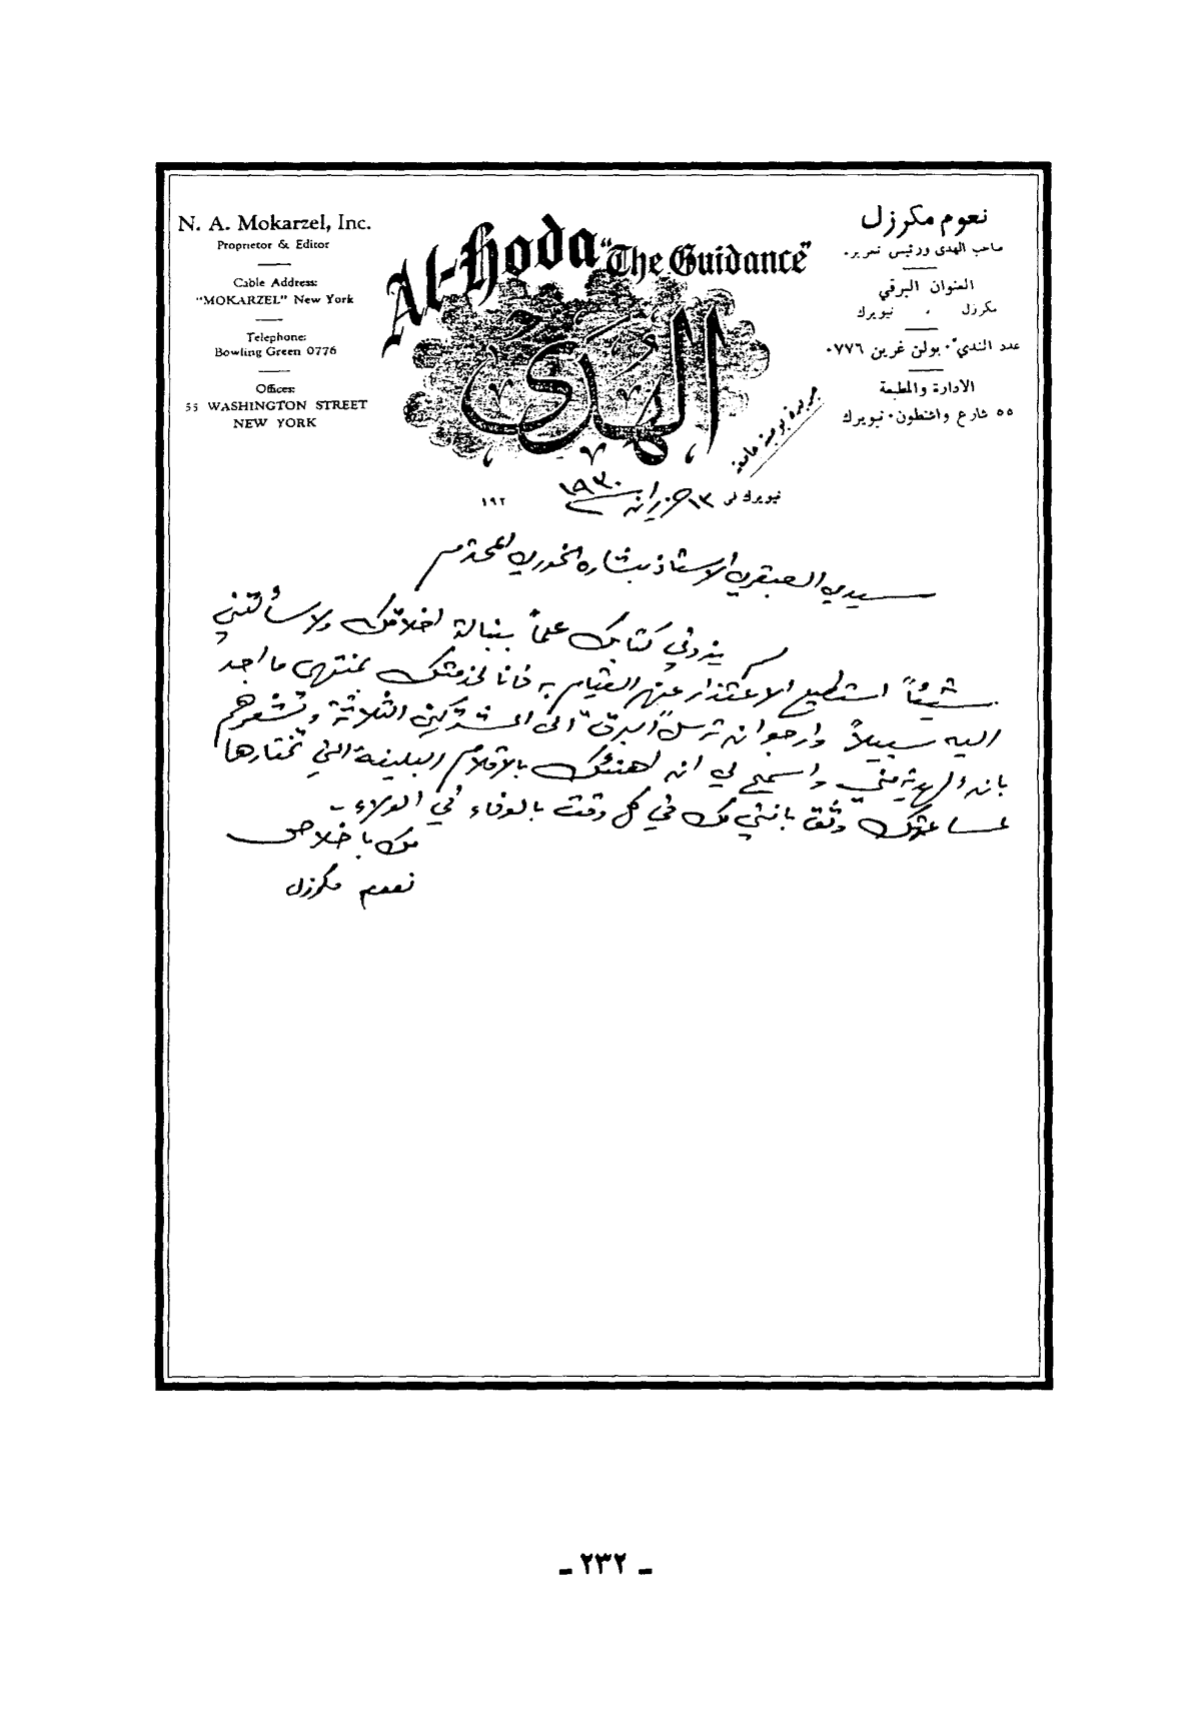 N. A. Mokarzel, Inc.
Proprietor & Editor
Cable Address:
"MOKARZEL" New York
Telephone:
Bowling Green 0776
Offices:
55 WASHINGTON STREET
NEW YORK
Al-Hoda "The Guidance"
الهدى
جريدة يومية جامعة
نعوم مكرزل
صاحب الهدى ورئيس تحريره
العنوان البرقي
مكرزل ، نيويرك
عدد الندي، بولن غرين ٠٧٧٦
الادارة والمطبعة
٥٥ شارع واشنطون، نيويرك
نيويرك في ١٣ حزيران ١٩٣٠ ١٩٢
سيدي العبقري الاستاذ بشاره الخوري المحترم
يزدني كتابك علماً بنبالة اخلاقك ولا سألتني
شيئاً استطيع الاعتذار عن القيام به فانا لخدمتك بمنتهى ما اجد
اليه سبيلاً وارجو ان ترسل "البرق" الى المشتركين الثلاثة وتشعرهم
بان الهدية مني واسمح لي ان اهنئك بالاقلام البليغة التي تختارها
لمساعدتك وثق بانني منك في كل وقت بالوفاء في الولاء -
منك باخلاص
نعوم مكرزل
- ٢٣٢ -